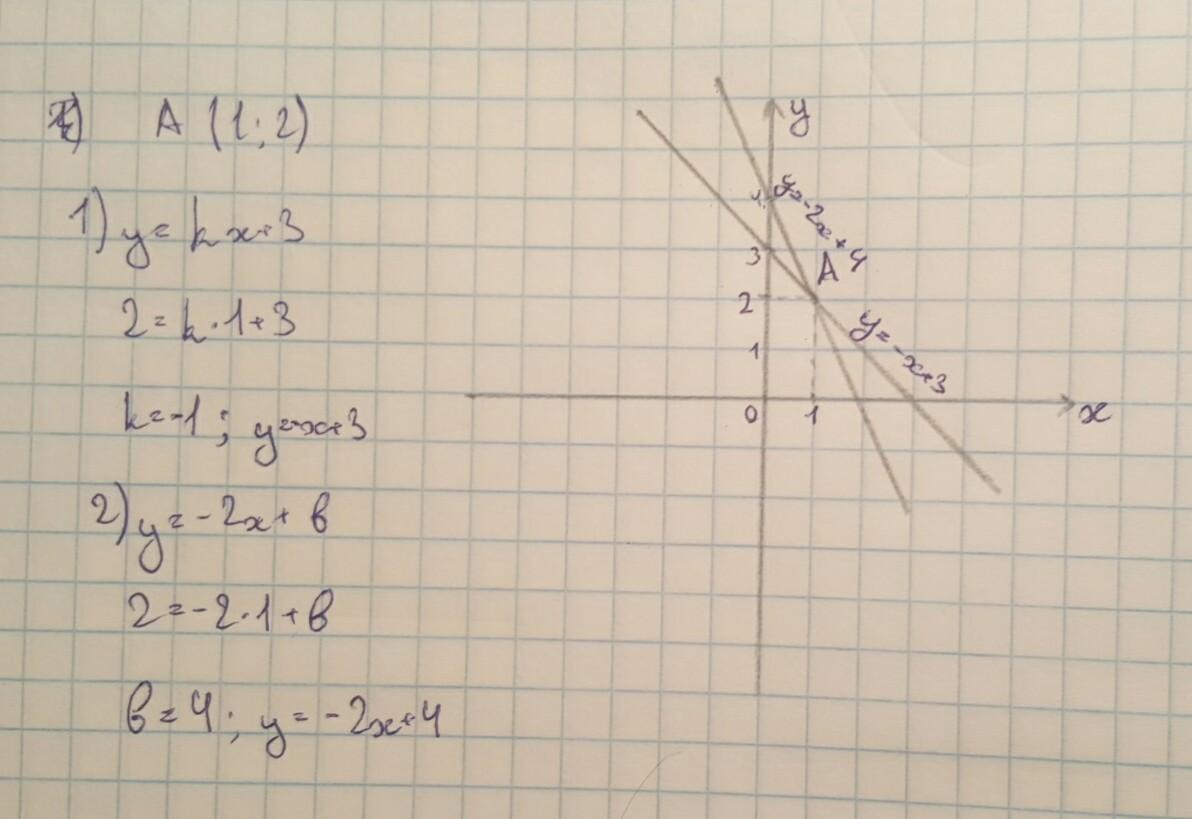 A (1; 2)
1) y = kx+3
2 = k·1+3
k=-1 ; y=-x+3
2) y = -2x+ в
2 = -2·1+в
в = 4 ; y = -2x+4
y
4
y=-2x+4
3
A
2
y=-x+3
1
0 1 x